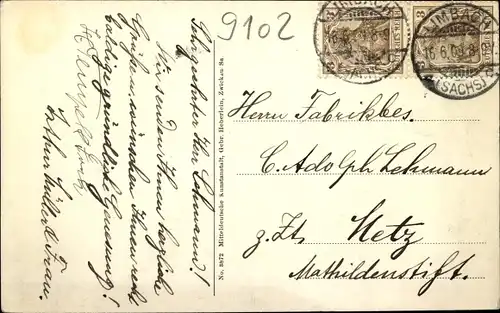 9102
LIMBACH
(SACHS.)
LIMBACH
16.6.09.8-
(SACHS.)
3
Sehr geehrter Herr Lehmann!
Wir senden Ihnen herzliche
Grüße u. wünschen Ihnen recht
baldige gründliche Genesung!
Arthur Müller u. Frau.
No. 3872 Mitteldeutsche Kunstanstalt, Gebr. Heberlein, Zwickau Sa.
Herrn Fabrikbes.
C. Adolph Lehmann
z. Zt. Metz
Mathildenstift.